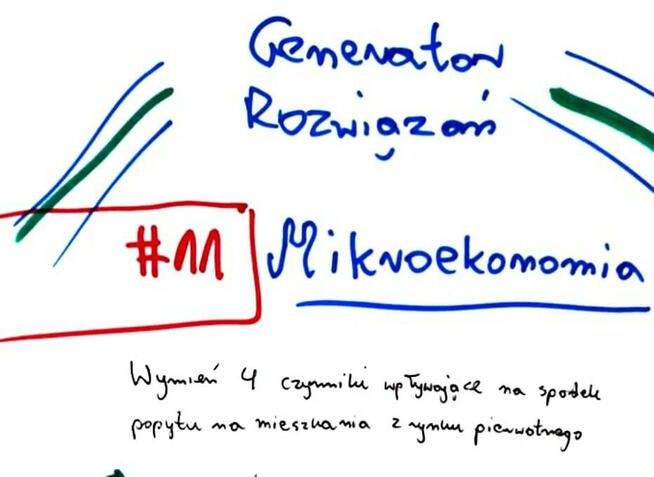 Generator
Rozwiązań
#11 Mikroekonomia
Wymień 4 czynniki wpływające na spadek
popytu na mieszkania z rynku pierwotnego